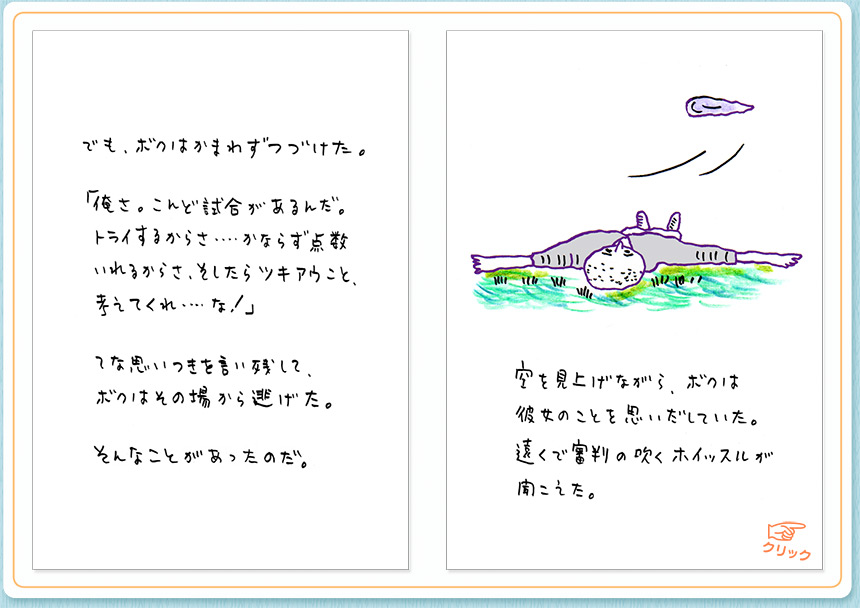 でも、ボクはかまわずつづけた。
「俺さ。こんど試合があるんだ。
トライするからさ‥‥かならず点数
いれるからさ、そしたらツキアウこと、
考えてくれ‥‥な!」
てな思いつきを言い残して、
ボクはその場から逃げた。
そんなことがあったのだ。
空を見上げながら、ボクは
彼女のことを思いだしていた。
遠くで審判の吹くホイッスルが
聞こえた。
クリック